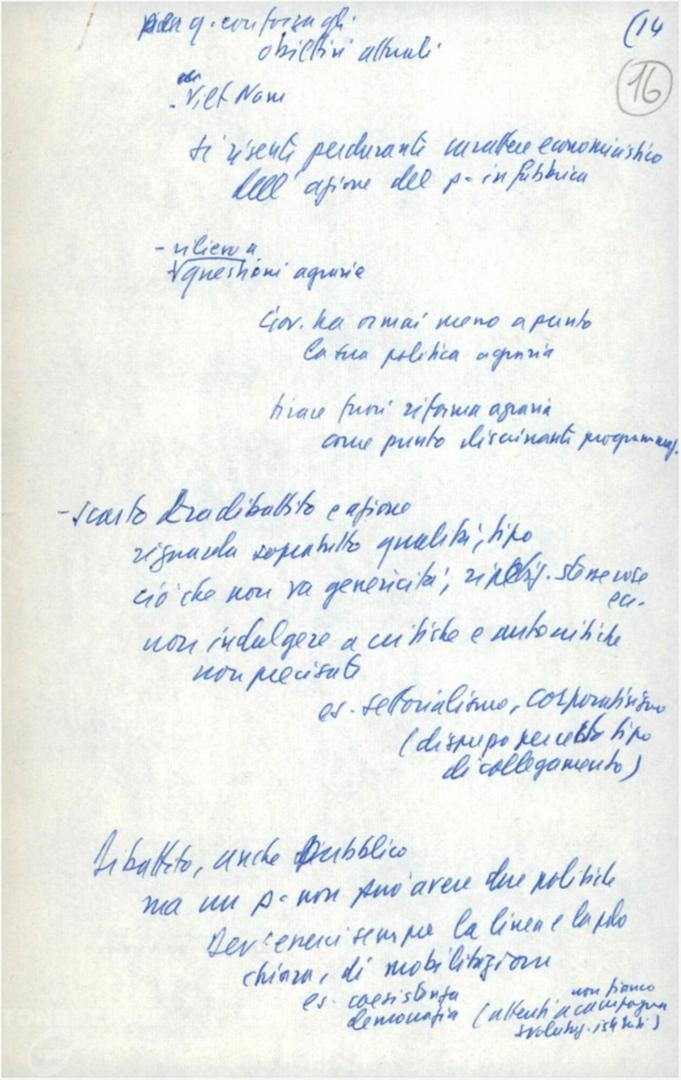 (14
16
con forza gli
obiettivi attuali
- Viet Nam
si risente perdurante carattere economicistico
dell'azione del p. in fabbrica
- rilievo a
questioni agrarie
Gov. ha ormai meno a punto
la sua politica agraria
tirare fuori riforma agraria
come punto discriminante programm.
- scarto tra dibattito e azione
riguarda sopratutto qualità, tipo
ciò che non va genericità,
ecc.
non indulgere a critiche e autocritiche
non precisate
es. settorialismo, corporativismo
tipo
di collegamento)
Dibattito, anche pubblico
ma un p. non può avere due politiche
Dev'esserci sempre la linea e la
chiara, di mobilitazione
es. coesistenza
democrazia (attenti a campagna